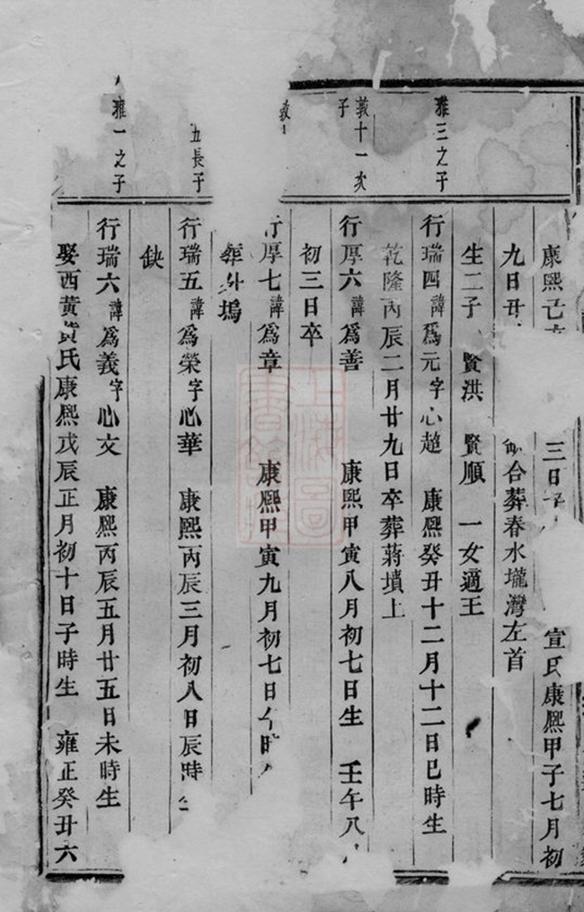 康熙己 三日 宣氏康熙甲子七月初
九日 合葬春水壠灣左首
生二子 賢洪 賢順 一女適王
雍三之子
行瑞四諱為元字心趙 康熙癸丑十二月十二日巳時生
乾隆丙辰二月廿九日卒葬蔣墳上
敦十一次子
行厚六諱為善 康熙甲寅八月初七日生 壬午八
初三日卒
行厚七諱為章 康熙甲寅九月初七日午時
葬外塢
五長子
行瑞五諱為榮字心華 康熙丙辰三月初八日辰時生
缺
雍一之子
行瑞六諱為義字心文 康熙丙辰五月廿五日未時生
娶西黃黃氏康熙戊辰正月初十日子時生 雍正癸丑六